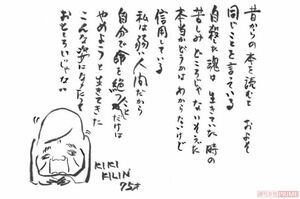 昔からの本を読むと およそ
同じことを言っている
自殺した魂は 生きていた時の
苦しみどころじゃないそうだ
本当かどうかは わからないけど
信用している
私は弱い人間だから
自分で命を絶つことだけは
やめようと 生きてきた
こんな姿になったって
おもしろいじゃない
KIKI
KILIN
75才